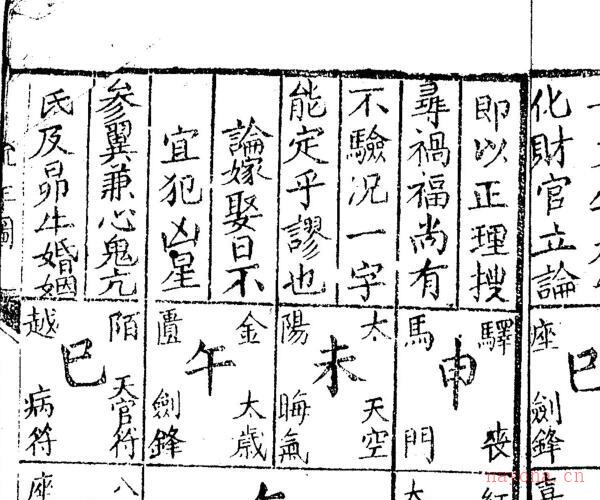 化財官立論
即以正理搜
尋禍福尚有
不驗况一字
能定乎謬也
論嫁娶日不
宜犯凶星
參翼兼心鬼亢
氐及昴牛婚姻
座 劍鋒
驛 申 馬
喪門
太 未 陽
天空 晦氣
金 午 匱
太歲 劍鋒
陌 巳 越
天官符 病符
座
nayona.cn